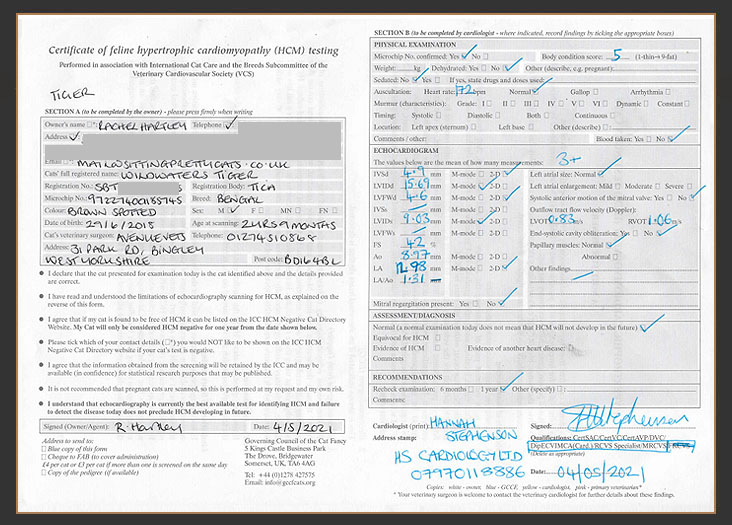 Certificate of feline hypertrophic cardiomyopathy (HCM) testing
Performed in association with International Cat Care and the Breeds Subcommittee of the
Veterinary Cardiovascular Society (VCS)
TIGER
SECTION A (to be completed by the owner) - please press firmly when writing
Owner's name : RACHEL HARTLEY Telephone
Address
Email : MAIL@SITTINGPRETTYCATS.CO.UK
Cats' full registered name: WINDWATERS TIGER
Registration No.: SBT Registration Body: TICA
Microchip No.: Breed: BENGAL
Colour: BROWN SPOTTED Sex: M F MN FN
Date of birth: 29/6/2018 Age at scanning: 2YRS 9 MONTHS
Cat's veterinary surgeon: AVENUE VETS Telephone: 01274510868
Address: 31 PARK RD, BINGLEY
WEST YORKSHIRE Post code: BD16 4BL
I declare that the cat presented for examination today is the cat identified above and the details provided
are correct.
I have read and understood the limitations of echocardiography scanning for HCM, as explained on the
reverse of this form.
I agree that if my cat is found to be free of HCM it can be listed on the ICC HCM Negative Cat Directory
Website. My Cat will only be considered HCM negative for one year from the date shown below.
Please tick which of your contact details (*) you would NOT like to be shown on the ICC HCM
Negative Cat Directory website if your cat's test is negative.
I agree that the information obtained from the screening will be retained by the ICC and may be
available (in confidence) for statistical research purposes that may be published.
It is not recommended that pregnant cats are scanned, so this is performed at my request and my own risk.
I understand that echocardiography is currently the best available test for identifying HCM and failure
to detect the disease today does not preclude HCM developing in future.
Signed (Owner/Agent): R. Hartley Date: 4/5/2021
Address to send to:
Blue copy of this form
Cheque to FAB (to cover administration)
£4 per cat or £3 per cat if more than one is screened on the same day
Copy of the pedigree (if available)
Governing Council of the Cat Fancy
5 Kings Castle Business Park
The Drove, Bridgewater
Somerset, UK, TA6 4AG
Tel: +44 (0)1278 427575
Email: info@gccfcats.org
SECTION B (to be completed by cardiologist - where indicated, record findings by ticking the appropriate boxes)
PHYSICAL EXAMINATION
Microchip No. confirmed: Yes No Body condition score: 5 (1-thin→9-fat)
Weight: kg Dehydrated: Yes No Other (describe, e.g. pregnant):
Sedated: No Yes If yes, state drugs and doses used:
Auscultation: Heart rate: 172 bpm Normal Gallop Arrhythmia
Murmur (characteristics): Grade: I II III IV V VI Dynamic Constant
Timing: Systolic Diastolic Both Continuous
Location: Left apex (sternum) Left base Other (describe)
Comments / other: Blood taken: Yes No
ECHOCARDIOGRAM
The values below are the mean of how many measurements: 3+
IVSd 4.9 mm M-mode 2-D Left atrial size: Normal
LVIDd 15.69 mm M-mode 2-D Left atrial enlargement: Mild Moderate Severe
LVFWd 4.6 mm M-mode 2-D Systolic anterior motion of the mitral valve: Yes No
IVSs mm M-mode 2-D Outflow tract flow velocity (Doppler):
LVIDs 9.03 mm M-mode 2-D LVOT 0.83 m/s RVOT 1.06 m/s
LVFWs mm M-mode 2-D End-systolic cavity obliteration: Yes No
FS 42 % Papillary muscles: Normal
Ao 8.97 mm M-mode 2-D Abnormal
LA 11.98 mm M-mode 2-D Other findings
LA/Ao 1.31
Mitral regurgitation present: Yes No
ASSESSMENT/DIAGNOSIS
Normal (a normal examination today does not mean that HCM will not develop in the future)
Equivocal for HCM
Evidence of HCM Evidence of another heart disease:
Comments
RECOMMENDATIONS
Recheck examination: 6 months 1 year Other (specify)
Comments:
Cardiologist (print) HANNAH STEPHENSON Signed: HStephenson
Address stamp: HS CARDIOLOGY LTD
07970118886
Qualifications: CertSAC/CertVC/CertAVP/DVC/
DipECVIMCA(Card.)/RCVS Specialist/MRCVS
(Delete as appropriate)
Date: 04/05/2021
Copies: white - owner, blue - GCCF, yellow - cardiologist, pink - primary veterinarian*
* Your veterinary surgeon is welcome to contact the veterinary cardiologist for further details about these findings.